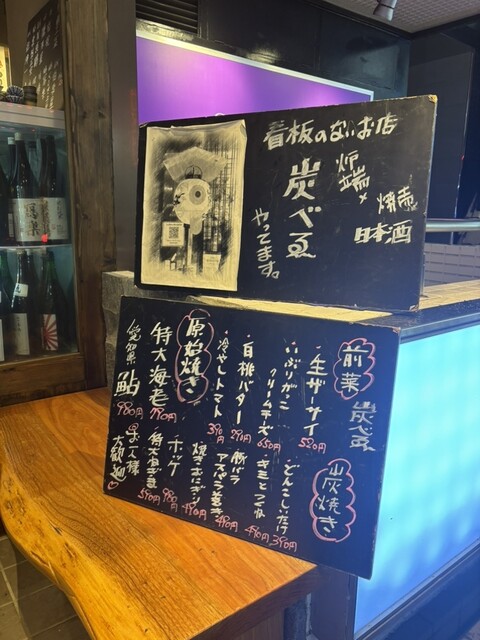 看板のないお店
炉端×
焼き
日本酒
炭べゑ
やってます。
炭べゑ
前菜
・生ザーサイ 520円
・いぶりがっこクリームチーズ 650円
・白桃バター 290円
・冷やしトマト 390円
原始焼き
特大海老 790円
愛知県 鮎 980円
炭焼き
どんこしいたけ 390円
490円
豚バラアスパラ巻き 490円
焼きおにぎり 490円
ホッケ 980円
590円
お一人様大歓迎♡